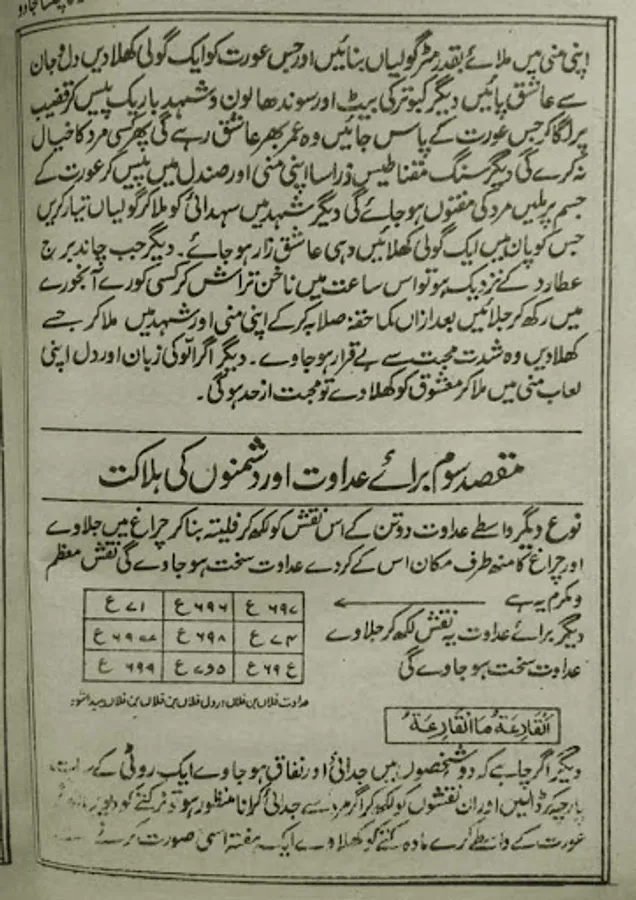 اپنی منی میں ملائے بقدر مٹر گولیاں بنائیں اور جس عورت کو ایک گولی کھلا دیں دل و جان
سے عاشق پائیں دیگر کبوتر کی بیٹ اور سوندھا لون و شہد باریک پیس کر قضیب
پر لگا کر جس عورت کے پاس جائیں وہ عمر بھر عاشق رہے گی پھر کسی مرد کا خیال
نہ کرے گی دیگر سنگ مقناطیس ذرا سا اپنی منی اور صندل میں پیس کر عورت کے
جسم پر ملیں مرد کی مفتوں ہو جائے گی دیگر شہد میں سہدائی کو ملا کر گولیاں تیار کریں
جس کو پان میں ایک گولی کھلائیں وہی عاشق زار ہو جائے۔ دیگر جب چاند برج
عطارد کے نزدیک ہو تو اس ساعت میں ناخن تراش کر کسی کورے آبخورے
میں رکھ کر جلائیں بعد ازاں کما حقہٗ صلابہ کر کے اپنی منی اور شہد میں ملا کر جسے
کھلا دیں وہ شدت محبت سے بے قرار ہو جاوے۔ دیگر اگر الّو کی زبان اور دل اپنی
لعاب منی میں ملا کر معشوق کو کھلا دے تو محبت از حد ہو گی۔
مقصد سوم برائے عداوت اور دشمنوں کی ہلاکت
نوع دیگر واسطے عداوت دو تن کے اس نقش کو لکھ کر فلیتہ بنا کر چراغ میں جلاوے
اور چراغ کا منہ طرف مکان اس کے کر دے عداوت سخت ہو جاوے گی نقش معظم
و مکرم یہ ہے
دیگر برائے عداوت یہ نقش لکھ کر جلاوے
عداوت سخت ہو جاوے گی
۶۹۷ ع ۶۹۶ ع ۷۱ ع
۷۴ ع ۶۹۸ ع
۶۹ ع ۶۹۹ ع
عداوت فلاں بن فلاں در دل فلاں بن فلاں بن فلاں پیدا شود
اَلْقَارِعَةُ مَا الْقَارِعَةُ
دیگر اگر چاہے کہ دو شخصوں میں جدائی اور نفاق ہو جاوے ایک روٹی کے
پارچے ڈالیں اور ان نقشوں کو لکھ کر اگر مرد سے جدائی کرانا منظور ہو تو نر کتے کو
عورت کے واسطے کرے مادہ کتے کو کھلاوے ایک ہفتہ اسی صورت کرے